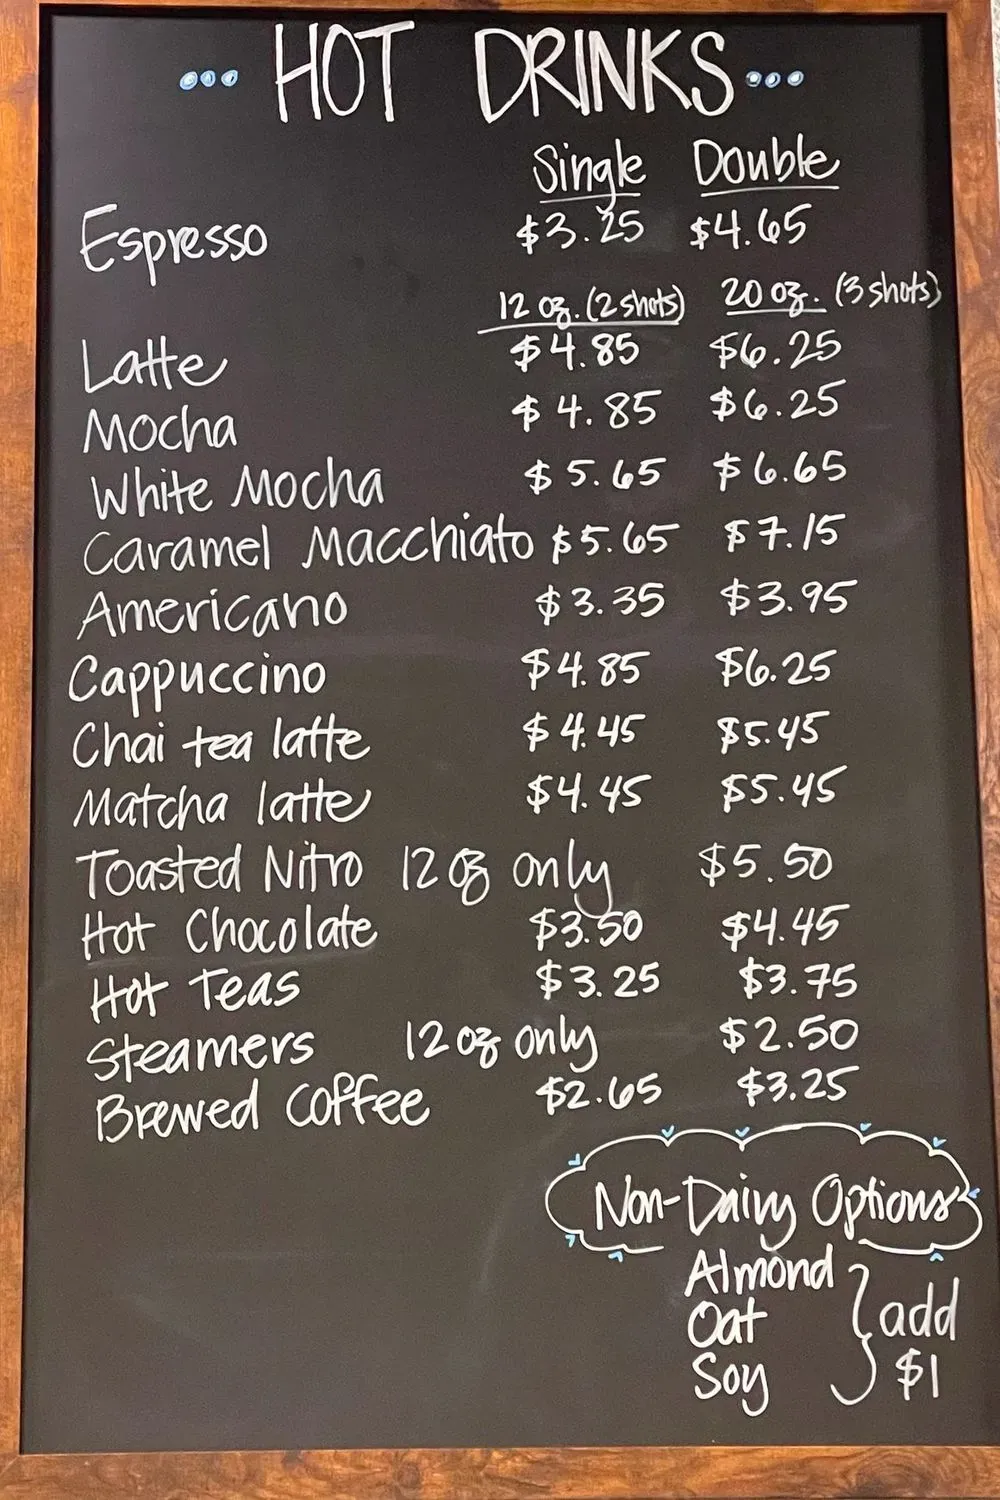 HOT DRINKS
Single Double
Espresso $3.25 $4.65
12 oz. (2 shots) 20 oz. (3 shots)
Latte $4.85 $6.25
Mocha $4.85 $6.25
White Mocha $5.65 $6.65
Caramel Macchiato $5.65 $7.15
Americano $3.35 $3.95
Cappuccino $4.85 $6.25
Chai tea latte $4.45 $5.45
Matcha latte $4.45 $5.45
Toasted Nitro 12 oz only $5.50
Hot Chocolate $3.50 $4.45
Hot Teas $3.25 $3.75
Steamers 12 oz only $2.50
Brewed Coffee $2.65 $3.25
Non-Dairy Options
Almond
Oat
Soy
add
$1